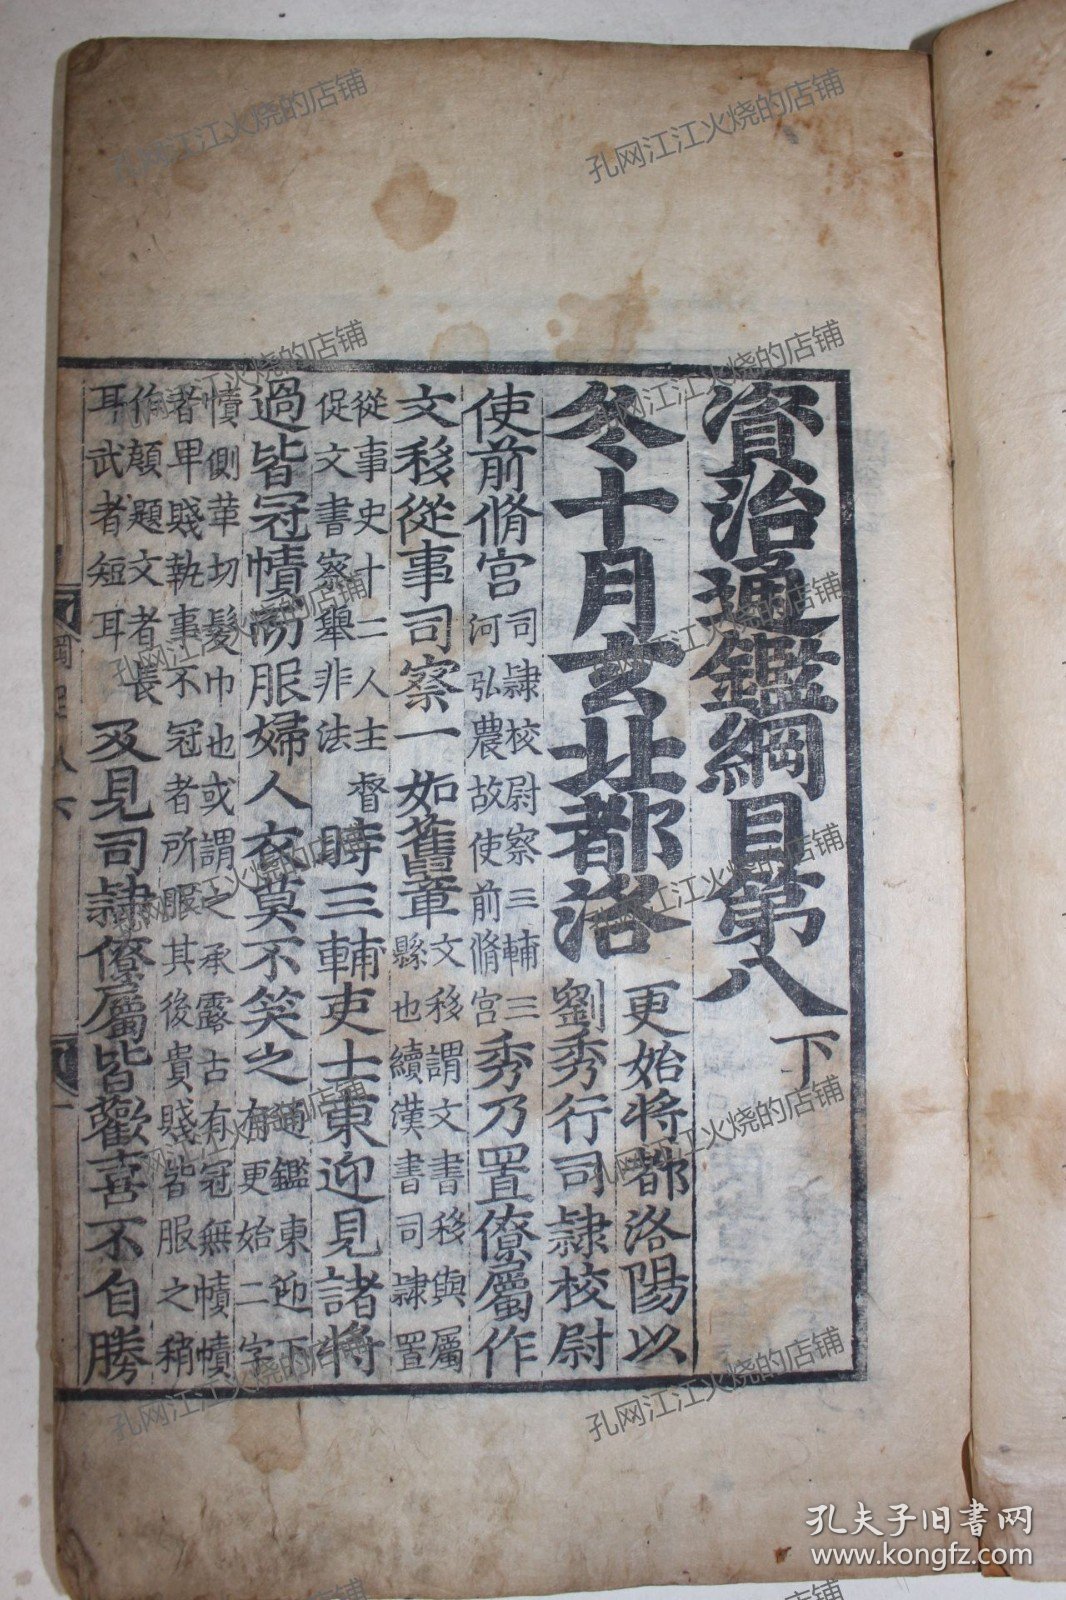 資治通鑑綱目第八下
冬十月玄北都洛
更始將都洛陽以
劉秀行司隷校尉
使前脩宮
司隷校尉察三輔三
河弘農故使前脩宮
秀乃置僚屬作
文移從事司察一如舊章
文移謂文書移與屬
縣也續漢書司隷置
從事史十二人主督
促文書察舉非法
時三輔吏士東迎見諸將
過皆冠幘而服婦人衣莫不笑之
通鑑東迎下
有更始二字
幘側革切髮巾也或謂之承露古有冠無幘幘
者卑賤執事不冠者所服其後貴賤皆服之稍
作顔題文者長
耳武者短耳
及見司隷僚屬皆歡喜不自勝
孔网江江火烧的店铺
孔夫子旧书网
www.kongfz.com